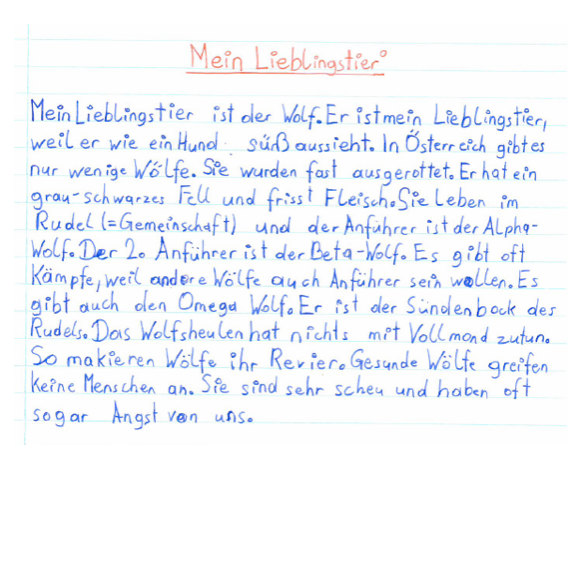 Mein Lieblingstier
Mein Lieblingstier ist der Wolf. Er ist mein Lieblingstier,
weil er wie ein Hund süß aussieht. In Österreich gibt es
nur wenige Wölfe. Sie wurden fast ausgerottet. Er hat ein
grau-schwarzes Fell und frisst Fleisch. Sie Leben im
Rudel (=Gemeinschaft) und der Anführer ist der Alpha-
Wolf. Der 2. Anführer ist der Beta-Wolf. Es gibt oft
Kämpfe, weil andere Wölfe auch Anführer sein wollen. Es
gibt auch den Omega Wolf. Er ist der Sündenbock des
Rudels. Das Wolfsheulen hat nichts mit Vollmond zutun.
So makieren Wölfe ihr Revier. Gesunde Wölfe greifen
keine Menschen an. Sie sind sehr scheu und haben oft
sogar Angst von uns.